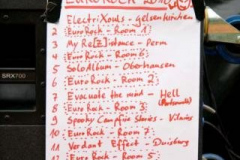 EUROROCK
Electri Xouls - Gelsenkirchen
2 EuroRock - Room 1
3 My Re[z]idance - Perm
4 EuroRock - Room 6
5 Solo Album - Oberhausen
6 EuroRock - Room 2
7 Evacuate the mind - Hell
8 EuroRock - Room 3
9 Spooky Campfire Stories - Vilnius
10 EuroRock - Room 7
11 Verdant Effect - Duisburg
12 EuroRock - Room 5
SRX700